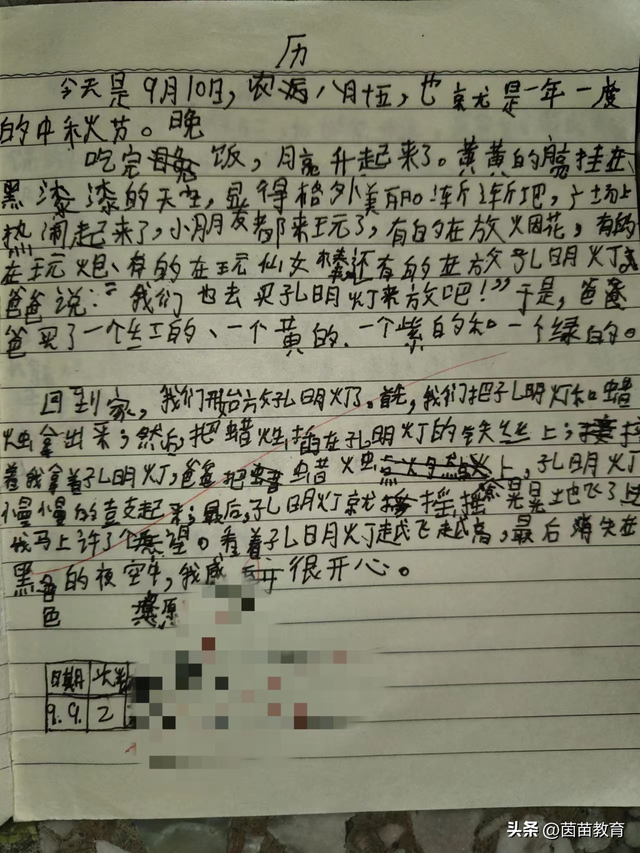 历
今天是9月10日,农历八月十五,也就是一年一度
的中秋节。晚
吃完晚饭,月亮升起来了。黄黄的月亮挂在
黑漆漆的天空,显得格外美丽。渐渐地,广场上
热闹起来了,小朋友都来玩了,有的在放烟花,有的
在玩炮、有的在玩仙女棒还有的在放孔明灯
爸爸说:“我们也去买孔明灯来放吧!”于是,爸爸
买了一个红的、一个黄的、一个紫的和一个绿的。
回到家,我们开始放孔明灯了。首先,我们把孔明灯和蜡
烛拿出来;然后,把蜡烛插在孔明灯的铁丝上;接
着我拿着孔明灯,爸爸把蜡烛点上,孔明灯
慢慢的支起来;最后,孔明灯就摇摇晃晃地飞了
我马上许了个愿望。看着孔明灯越飞越高,最后消失在
黑色的夜空中,我感 很开心。
色 愿
日期 次数
9.9. 2
头条 @茵苗教育